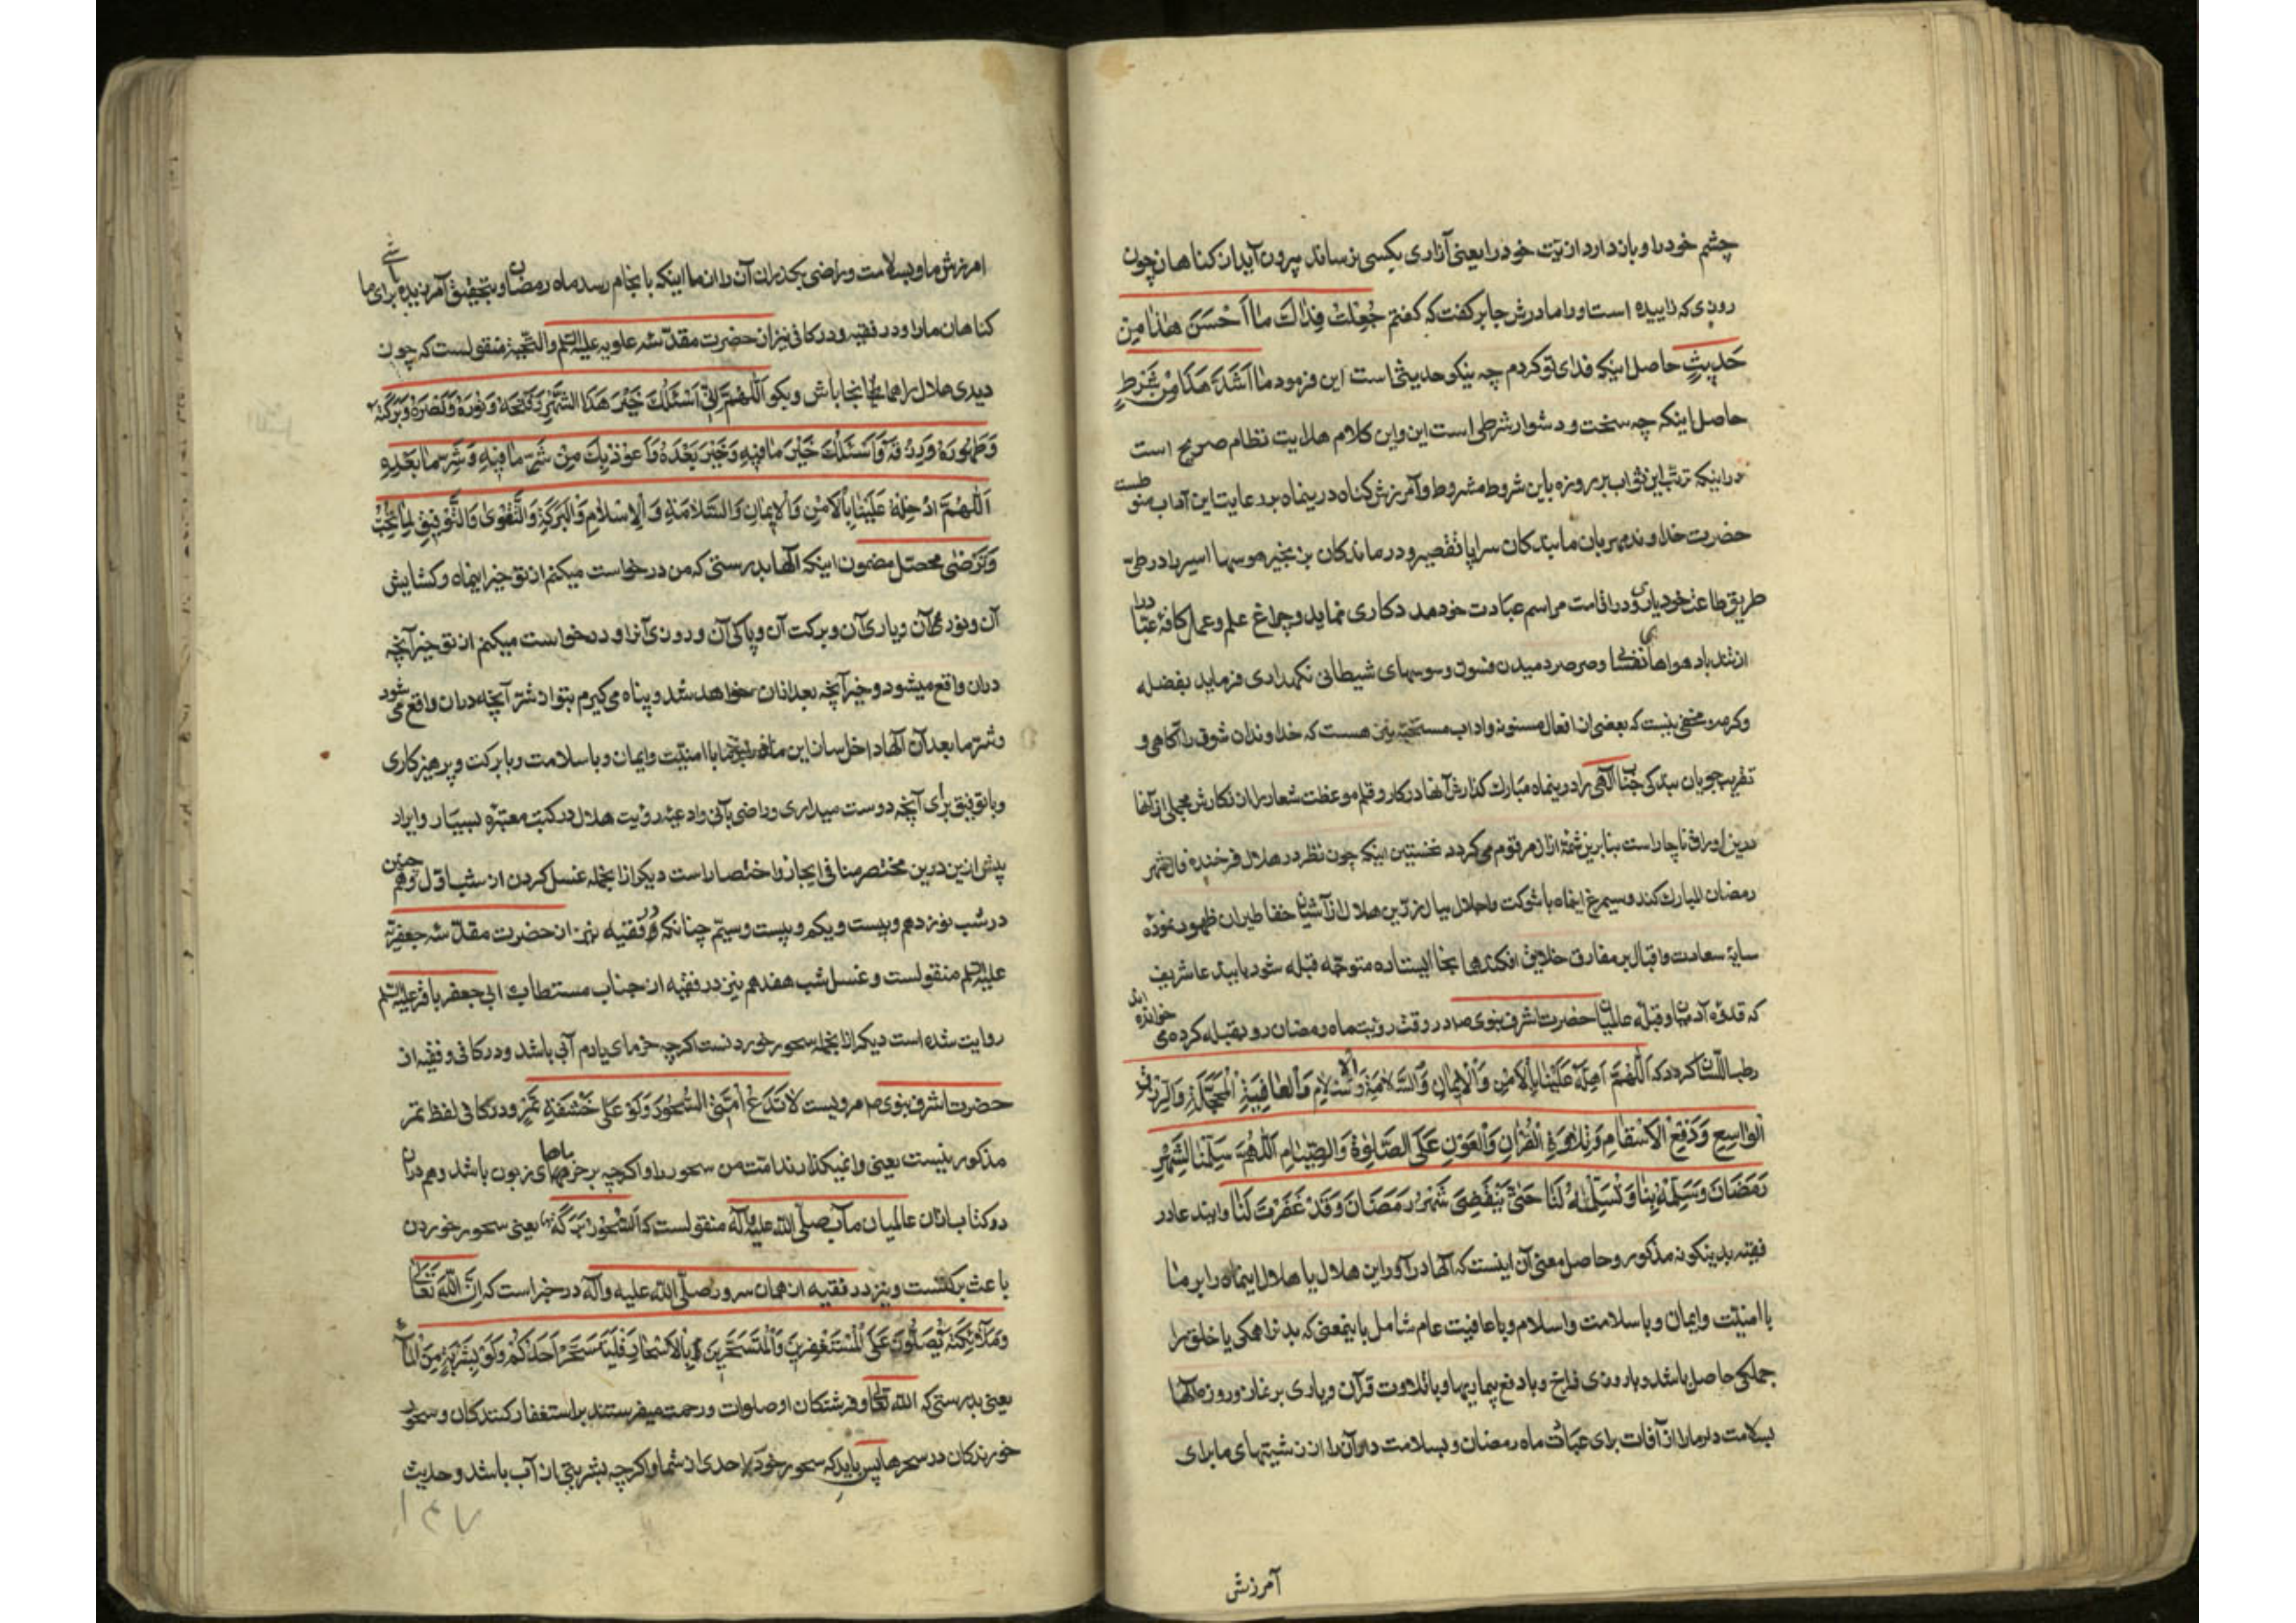 چشم خود را و باز دارد اذیت خود را یعنی آزاری بکسی نرساند بیرون آید از کناهان چون
روزی که زاییده است او را مادرش جابر کفت که کفتم جُعِلْتُ فِدٰاكَ مٰا اَحْسَنَ هٰذٰا مِنْ
حَدٖيثٍ حاصل اینکه فدای تو کردم چه نیکو حدیثی است این فرمود مٰا اَشَدَّ هٰذَا مِنْ شَرْطٍ
حاصل اینکه چه سخت و دشوار شرطی است این و این کلام هدایت نظام صریح است
در اینکه ترتب این ثواب بر روزه باین شروط مشروط و آمرزش کناه درینماه برعایت این آداب منوطست
حضرت خداوند مهربان ما بندکان سراپا تقصیر و درماندکان بزنجیر هوسها اسیر را در طیّ
طریق طاعت خود یاری و در اقامت مراسم عبادت خود مددکاری نماید و چراغ علم و عمل کافهٔ عباد را
از تندباد هواهای نفسانی و صرصر دمیدن فسون وسوسهای شیطانی نکهداری فرماید بفضله
و کرمه و مخفی نیست که بعضی از افعال مسنونه و اداب مستحبّه نیز هست که خداوندان شوق را آکاهی و
تقرب جویان بندکی جناب الٓهی را درینماه مبارك کذارش آنها در کار و قلم موعظت شعار را از نکارش مجملی از آنها
درین اوراق ناچار است بنابرین شمهٔ از آن مرقوم می کردد نخستین اینکه چون نظر در هلال فرخنده فال شهر
رمضان المبارك کند و سیمرغ اینماه با شوکت و اجلال ببال زرین هلال از آشیان خفا طیران ظهور نموده
سایهٔ سعادت و اقبال بر مفارق خلایق افکند همانجا ایستاده متوجّه قبله شود باین دعا شریف
که قدوهٔ آدمیان و قبلهٔ عالمیان حضرت اشرف نبوی ص در وقت رؤیت ماه رمضان رو بقبله کرده می خوانده اند
رطب اللسان کردد که اَللّٰهُمَّ اَهِلَّهُ عَلَيْنٰا بِالْاَمْنِ وَالْاٖيمٰانِ وَالسَّلٰامَةِ وَالْاِسْلٰامِ وَالْعٰافِيَةِ الْمُجَلَّلَةِ وَالرِّزْقِ
الْوٰاسِعِ وَدَفْعِ الْاَسْقٰامِ وَتِلٰاوَةِ الْقُرْاٰنِ وَالْعَوْنِ عَلَى الصَّلٰوةِ وَالصِّيٰامِ اَللّٰهُمَّ سَلِّمْنٰا لِشَهْرِ
رَمَضٰانَ وَسَلِّمْهُ مِنّٰا وَتَسَلَّمْهُ لَنٰا حَتّٰى يَنْقَضِىَ شَهْرُ رَمَضَانَ وَقَدْ غَفَرْتَ لَنٰا و این دعا در
فقیه بدینکونه مذکور و حاصل معنی آن اینست که الٓها درآور این هلال یا هلال اینماه را بر ما
با امنیّت و ایمان و با سلامت و اسلام و با عافیت عام شامل باینمعنی که بدنرا همکی یا خلق را
جملکی حاصل باشد و با روزی فراخ و با دفع بیماریها و با تلاوت قرآن و یاری بر نماز و روزه الٓها
بسلامت دار ما را از آفات برای عبادت ماه رمضان و بسلامت دار آنرا از زشتیهای ما برای
آمرزش
امرزش ما و بسلامت و راضی بکذران آن را از ما اینکه بانجام رسد ماه رمضان و بتحقیق آمرزیده باشی برای ما
کناهان ما را و در فقیه و در کافی نیز از حضرت مقدّسه علویه علیه السّلم و التحیّة منقولست که چون
دیدی هلال را همانجا باش و بکو اَللّٰهُمَّ اِنّٖى اَسْئَلُكَ خَيْرَ هٰذَا الشَّهْرِ وَفَتْحَهُ وَنُورَهُ وَنَصْرَهُ وَبَرَكَتَهُ
وَطَهُورَهُ وَرِزْقَهُ وَاَسْئَلُكَ خَيْرَ مٰا فٖيهِ وَخَيْرَ بَعْدَهُ وَاَعُوذُ بِكَ مِنْ شَرِّ مٰا فٖيهِ وَشَرِّ مٰا بَعْدَهُ
اَللّٰهُمَّ اَدْخِلْهُ عَلَيْنٰا بِالْاَمْنِ وَالْاٖيمٰانِ وَالسَّلٰامَةِ وَالْاِسْلٰامِ وَالْبَرَكَةِ وَالتَّقْوىٰ وَالتَّوْفٖيقِ لِمٰا تُحِبُّ
وَتَرْضٰى محصّل مضمون اینکه الٓها بدرستی که من درخواست میکنم از تو خیر اینماه و کشایش
آن و نور آن و یاری آن و برکت آن و پاکی آن و روزی آنرا و درخواست میکنم از تو خیر آنچه
در آن واقع میشود و خیر آنچه بعد از آن خواهد شد و پناه می کیرم بتو از شرّ آنچه در آن واقع می شود
و شرّ ما بعد آن الٓها داخل ساز این ماه را بما با امنیّت و ایمان و با سلامت و با برکت و پرهیزکاری
و با توفیق برای آنچه دوست میداری و راضی بآنی و ادعیهٔ رؤیت هلال در کتب معتبره بسیار و ایراد
پیش ازین درین مختصر منافی ایجاز و اختصار است دیکر از انجمله غسل کردن از شب اول و همچنین
در شب نوزدهم و بیست و یکم و بیست و سیّم چنانکه در فقیه نیز از حضرت مقدّسه جعفریّه
علیه السّلم منقولست و غسل شب هفدهم نیز در فقیه از جناب مستطاب ابی جعفر باقر علیه السّلم
روایت شده است دیکر از انجمله سحور خوردنست اکرچه خرمای یا دم آبی باشد و در کافی و فقیه از
حضرت اشرف نبوی ص مرویست لٰا تَدَعْ اُمَّتِىَ السَّحُورَ وَلَوْ عَلىٰ حَشَفَةِ تَمْرٍ و در کافی لفظ تمر
مذکور نیست یعنی وانمیکذارند امّت من سحور را و اکرچه بر خرماهای زبون باشد و هم در آن
دو کتاب از آن عالمیان مآب صلّی اللّٰه علیه و آله منقولست که اَلسَّحُورُ بَرَكَةٌ یعنی سحور خوردن
باعث برکتست و نیز در فقیه از همان سرور صلّی اللّٰه علیه و آله در خبر است که اِنَّ اللّٰهَ تَعٰالىٰ
وَمَلٰآئِكَتَهُ يُصَلُّونَ عَلَى الْمُسْتَغْفِرٖينَ وَالْمُتَسَحِّرٖينَ بِالْاَسْحٰارِ فَلْيَتَسَحَّرْ اَحَدُكُمْ وَلَوْ بِشَرْبَةٍ مِنَ الْمٰآءِ
یعنی بدرستی که اللّٰه تعالی و فرشتکان او صلوات و رحمت میفرستند بر استغفار کنندکان و سحور
خورندکان در سحرها پس باید که سحور خورد احدی از شما و اکرچه بشربتی از آب باشد و حدیث